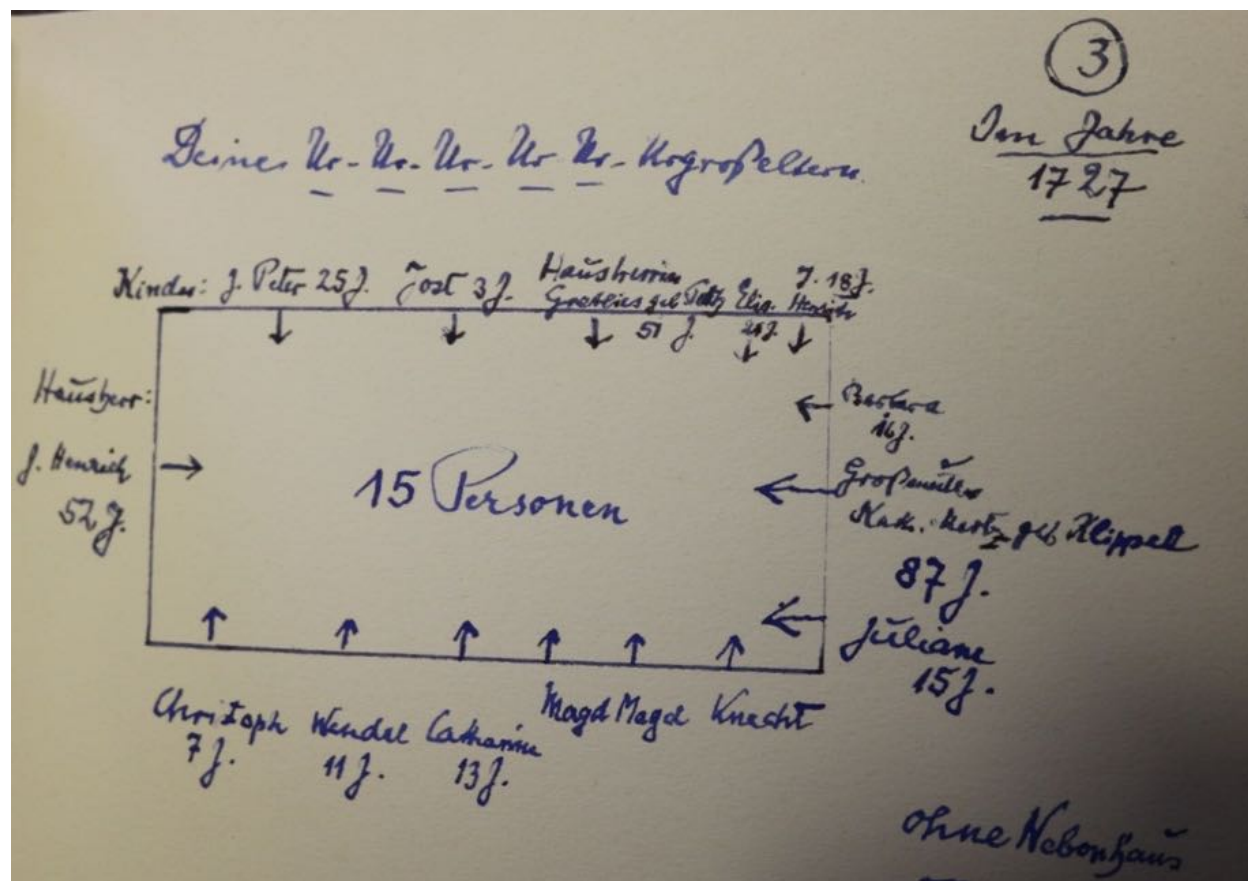 3
Im Jahre
1727
Deine Ur-Ur-Ur-Ur-Ur-Urgroßeltern
Kinder: J. Peter 25 J. Jost 3 J.
Hausherrin
geb.
51 J.
Elis.
24 J.
J. 18 J.
Henrich
Hausherr:
J. Henrich
52 J.
15 Personen
Barbara
16 J.
Großmutter
Kath. geb Klippel
87 J.
Juliane
15 J.
Christoph
7 J.
Wendel
11 J.
Catharine
13 J.
Magd Magd Knecht
ohne Nebenhaus